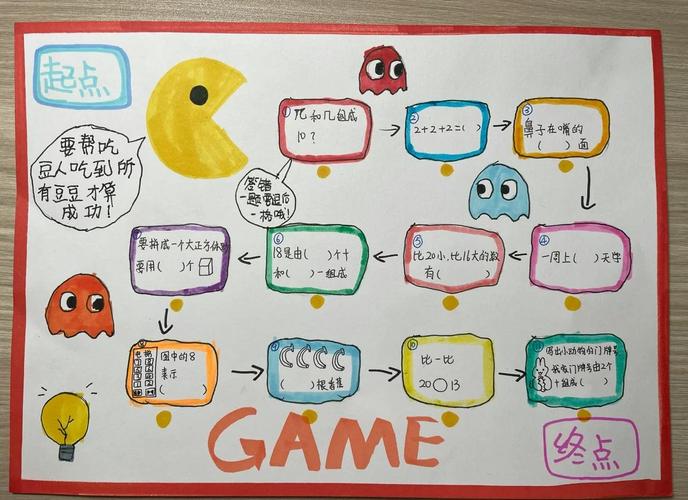 起点
要帮吃
豆人吃到所
有豆豆才算
成功!
答错
一题要退后
一格哦!
① 几和几组成
10?
② 2+2+2=( )
③
鼻子在嘴的
( )面
④
一周上( )天学
⑤
比20小,比16大的数
有( )
⑥
18是由( )个十
和( )一组成
要拼成一个大正方体
要用( )个
图中的8
表示
( )
⑨
( )根香蕉
⑩
比一比
20○13
写出小动物的门牌号
我家门牌号由2个
十组成( )
GAME
终点